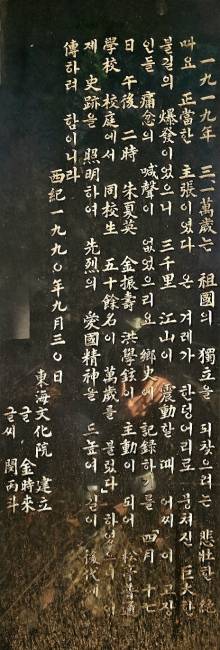 一九一九年 三一萬歲는 祖國의 獨立을 되찾으려는 悲壯한 絶
따요 正當한 主張이었다 온 겨레가 한덩어리로 뭉쳐진 巨大한
불길의 爆發이었으니 三千里 江山이 震動할때 어찌 이 고장
인들 痛忿의 喊聲이 없었으리요 鄕史에 記錄하기를 「四月 十七
日 午後 二時 朱夏英 金振壽 洪學鉉이 主動이 되어 松亭普通
學校 校庭에서 同校生 五十餘名이 萬歲를 불렀다」하였으니 이
제 史跡을 照明하여 先烈의 愛國精神을 드높여 길이 後代에
傳하려 함이니라
西紀 一九九○年 九月 三○日
東海文化院 建立
글 金時來
글씨 閔丙斗